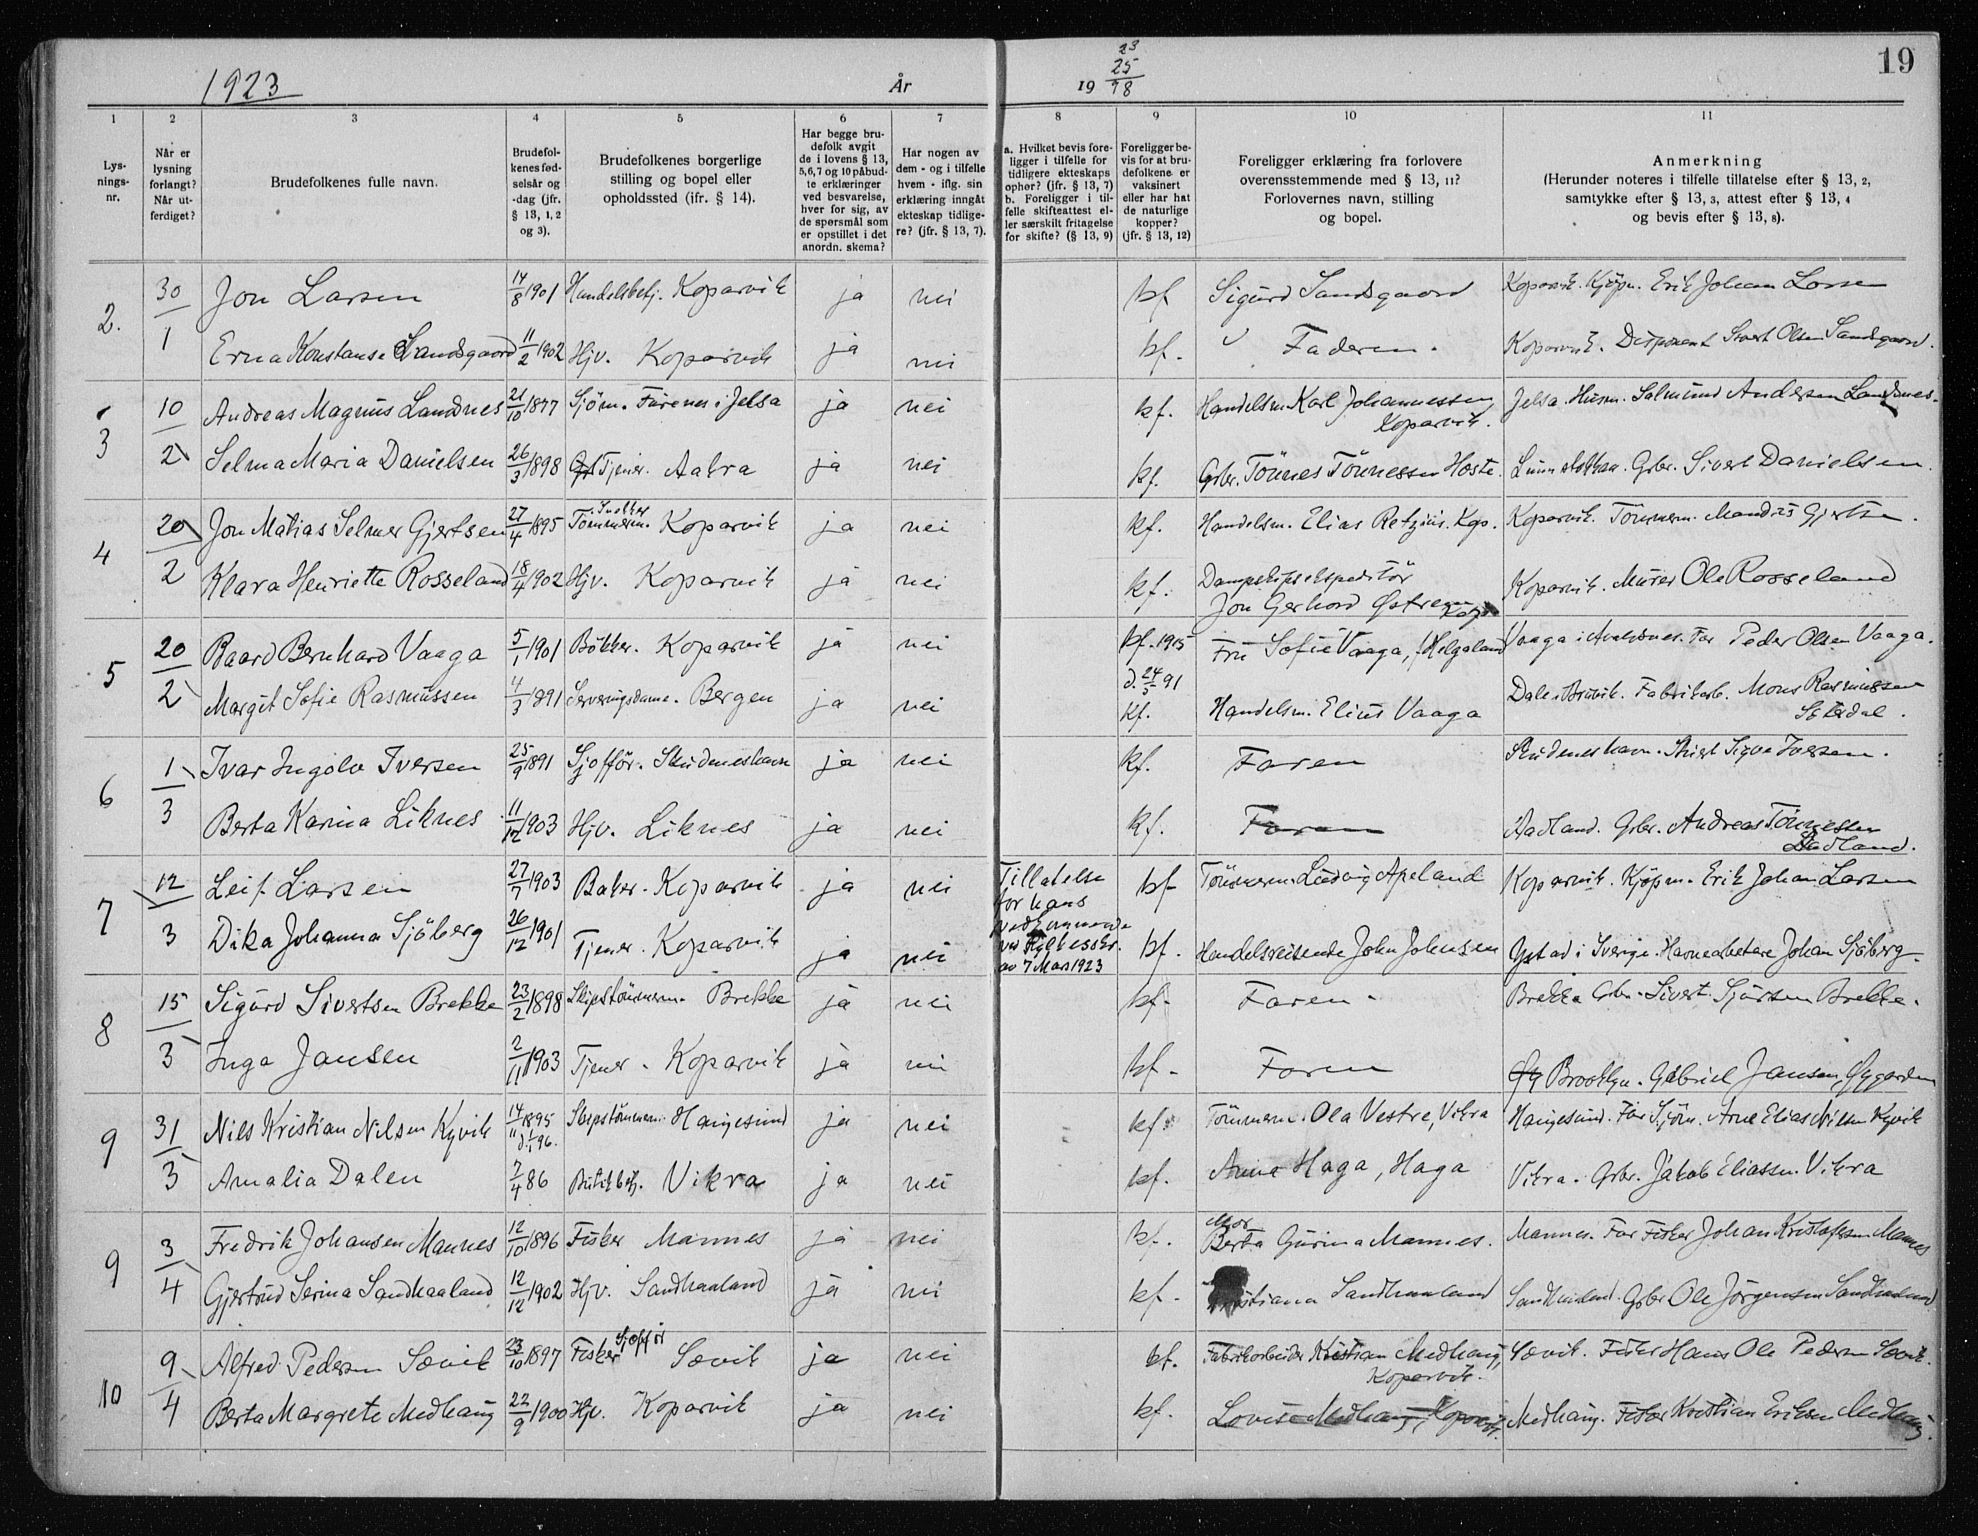 1923
År
19 23
25
98
19
1 2 3 4 5 6 7 8 9 10 11
Lys-
nings-
nr.
Når er
lysning
forlangt?
Når ut-
ferdiget?
Brudefolkenes fulle navn.
Brudefol-
kenes fød-
selsår og
-dag (jfr.
§ 13, 1, 2
og 3).
Brudefolkenes borgerlige
stilling og bopel eller
opholdssted (ifr. § 14).
Har begge bru-
defolk avgit
de i lovens § 13,
5,6,7 og 10 påbud-
te erklæringer
ved besvarelse,
hver for sig, av
de spørsmål som
er opstillet i det
anordn. skema?
Har nogen av
dem - og i tilfelle
hvem - iflg. sin
erklæring inngåt
ekteskap tidlige-
re? (jfr. § 13, 7).
a. Hvilket bevis fore-
ligger i tilfelle for
tidligere ekteskaps
ophør? (jfr. § 13, 7)
b. Foreligger i til-
felle skifteattest el-
ler særskilt fritagelse
for skifte? (§ 13, 9)
Foreligger be-
vis for at bru-
defolkene er
vaksinert
eller har hat
de naturlige
kopper?
(jfr. § 13, 12)
Foreligger erklæring fra forlovere
overensstemmende med § 13, 11?
Forlovernes navn, stilling
og bopel.
Anmerkning
(Herunder noteres i tilfelle tillatelse efter § 13, 2,
samtykke efter § 13, 3, attest efter § 13, 4
og bevis efter § 13, 8).
2. 30 Jon Larsen 14/8 1901 Handelsbetj. Koparvik ja nei kf Sigurd Sandsgaard Koparvik. Kjøpm. Erik Johan Larsen
1 Erna Konstanse Sandsgaard 11/2 1902 Hjv. Koparvik ja nei kf. Faderen. Koparvik. Disponent Sivert Olsen Sandsgaard.
3 10 Andreas Magnus Landsnes 21/10 1877 Sjöm. Furenes i Jelsa ja nei kf. Handelsm. Karl Johannessen Jelsa. Husm. Salmund Andersen Landsnes.
Koparvik.
2 Selma Maria Danielsen 26/3 1898 Tjener. Aakra ja nei kf. Grbr. Tönnes Tönnessen Hoste. Grbr. Sivert Danielsen.
4 20 Jon Matias Selmer Gjertsen 27/4 1895 Snekker
Tømmerm. Koparvik ja nei kf. Handelsm. Elias Retzius. Kop. Koparvik. Tömmerm. Mandius Gjertsen.
2 Klara Henriette Rosseland 18/4 1902 Hjv. Koparvik ja nei kf. Dampskipsekspeditör Koparvik. Murer Ole Rosseland
Jon Gerhard Østrem Kop.
5 20 Baard Bernhard Vaaga 5/1 1901 Bökker. Koparvik ja nei kf. 1915 Fru Sofie Vaaga, Helgeland Vaaga i Avaldsnes. Far Peder Olsen Vaaga.
2 Margit Sofie Rasmussen 4/3 1891 Serveringsdame. Bergen ja nei d. 24/5 91
kf. Handelsm. Elius Vaaga Dale i Bruvik. Fabrikarb. Mons Rasmussen
6 1 Ivar Ingolv Iversen 25/9 1891 Sjofför. Skudeneshavn ja nei kf. Faren Skudeneshavn. Skust Sigva Iversen.
3 Berta Karina Liknes 11/12 1903 Hjv. Liknes ja nei kf. Faren Aadland. Grbr. Andreas Tönnessen
Aadland.
7 12 Leif Larsen 27/7 1903 Baker. Koparvik ja nei Tillatelse
for hans
vedkommende
ved Fylkesskr.
av 7 Mars 1923 kf Tömmerm. Ludvig Apeland Koparvik. Kjöpm. Erik Johan Larsen
3 Dika Johanna Sjöberg 26/12 1901 Tjener. Koparvik ja nei kf. Handelsreisende John Johnsen Ystad i Sverige. Havnearbetare Johan Sjöberg.
8 15 Sigurd Sivertsen Brekke 23/2 1898 Skipstömmerm. Brekke ja nei kf. Faren. Brekke Grbr. Sivert Sjursen Brekke.
3 Inga Jansen 2/11 1903 Tjener. Koparvik ja nei kf. Faren Brooklyn. Gabriel Jansen, Øygarden
9 31 Nils Kristian Nilsen Kyvik 14/11 1895
d. 1/1 96. Skipstömmerm. Haugesund ja nei kf. Tömmerm. Ola Vestre, Vikra Haugesund. Far Sjöm. Arne Elias Nilsen Kyvik
3 Amalia Dalen 7/4 86 Butikkbetj. Vikra ja nei kf. Anna Haga, Haga Vikra. Grbr. Jakob Eliassen Vikra
9 3 Fredrik Johansen Mannes 12/10 1896 Fisker Mannes ja nei kf. Mor
Berta Gurina Mannes. Mannes. Far Fisker Johan Kristofersen Mannes
4 Gjertrud Serina Sandhaaland 12/12 1902 Hjv. Sandhaaland ja nei kf. Kristiana Sandhaaland Sandhaaland. Grbr Ole Jörgensen Sandhaaland
10 9 Alfred Pedersen Sævik 23/10 1897 Fisker Sjofför Sævik ja nei kf. Fabrikarbeider Kristian Medhaug, Sævik. Fisker Hans Ole Pedersen Sævik.
Koparvik.
4 Berta Margrete Medhaug 22/9 1900 Hjv. Koparvik ja nei kf. Lovise Medhaug, Koparvik. Medhaug. Fisker Kristian Eriksen Medhaug.